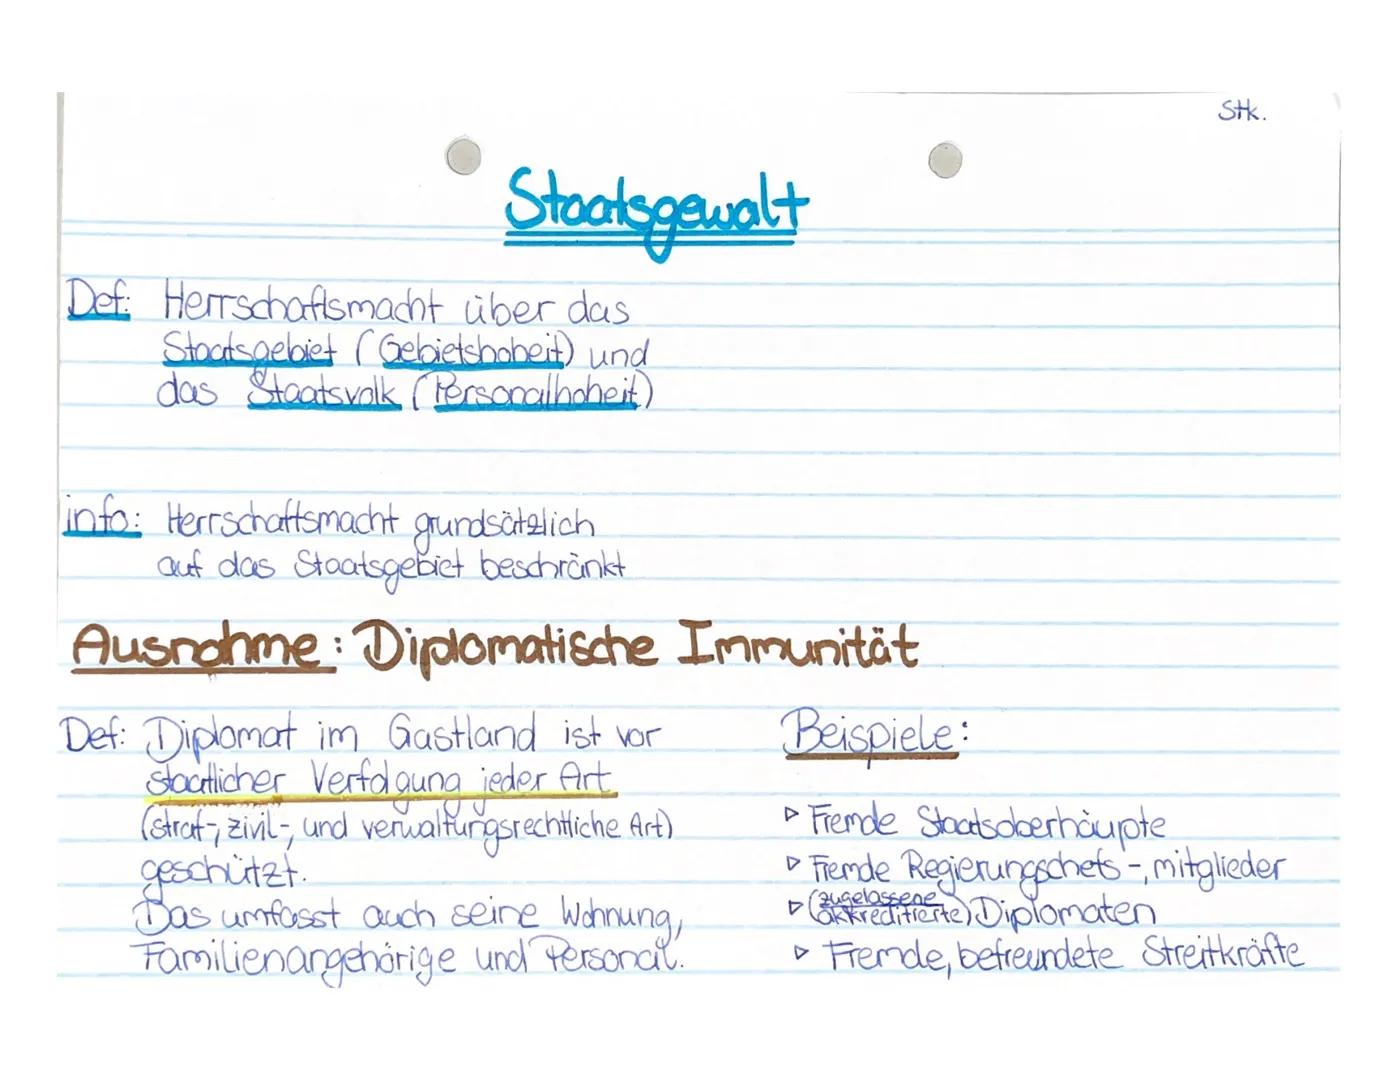 Stk.
Staatsgewalt
Def: Herrschaftsmacht über das
Staatsgebiet (Gebietshoheit) und
das Staatsvolk (Personalhoheit)
info: Herrschaftsmacht grundsätzlich
auf das Staatsgebiet beschränkt
Ausnahme: Diplomatische Immunität
Def: Diplomat im Gastland ist vor
staatlicher Verfolgung jeder Art
(straf-, zivil-, und verwaltungsrechtliche Art)
geschützt.
Das umfasst auch seine Wohnung,
Familienangehörige und Personal.
Beispiele:
▷ Fremde Staatsoberhäupte
▷ Fremde Regierungschefs -, mitglieder
zugelassene
▷ (akkreditierte) Diplomaten
▷ Fremde, befreundete Streitkräfte